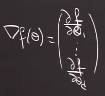 ∇f(θ) = (∂f/∂θ₁
⋮
∂f/∂θ_d)